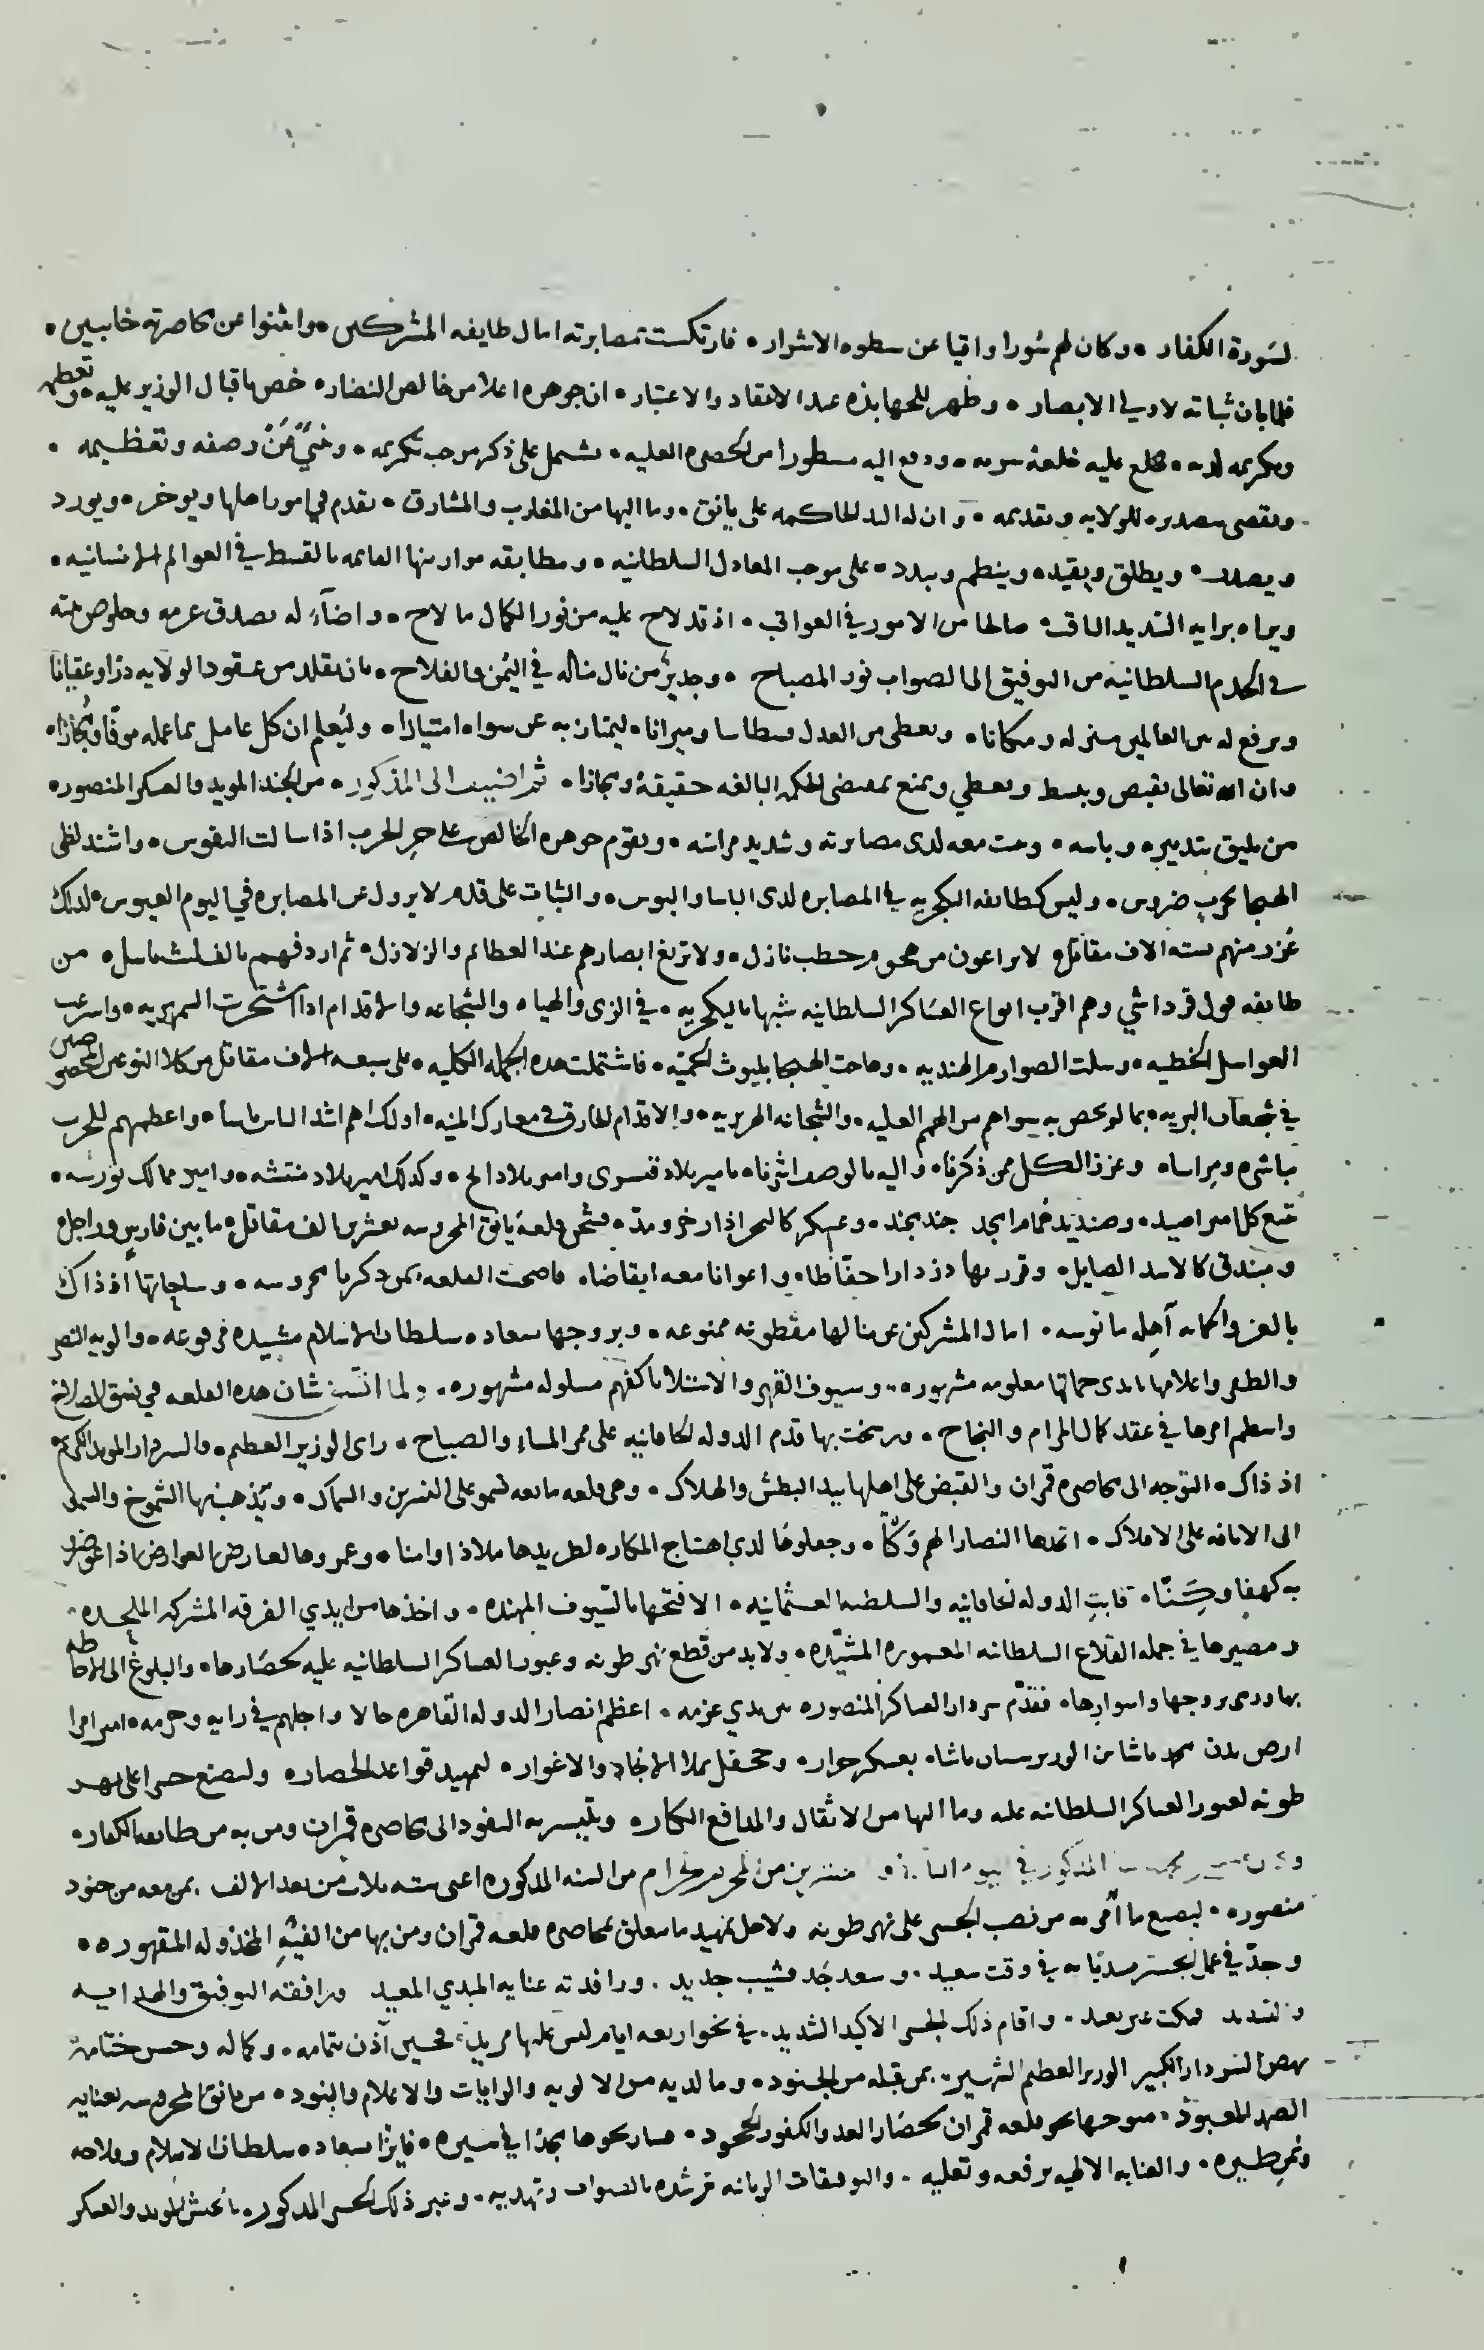 لسورة الكفار • وكان لهم سورا واقيا عن سطوه الاشرار • فارتكست بمصابرته امال طايفه المشركين • واثنوا عن محاصرته خايبين •
فلما بان ثباته لاولي الابصار • وظهر للجهابذه عند الانتقاد والاعتبار • ان جوهره اعلا من خالص النضار • خص باقبال الوزير عليه • وتعظيمه
وتكريمه لديه • فخلع عليه خلعة سريه • ودفع اليه مسطورا من الحضره العليه • يشمل على ذكر موجب تكريمه • وعن وصفه وتعظيمه •
ويقضي بتصديره للولايه وتقديمه • وان له اليد الحاكمه على يانق • وما اليها من المغارب والمشارق • يقدم في امور اهلها ويوخر • ويورد
ويصدر • ويطلق ويقيد • وينظم ويبدد • على موجب المعادل السلطانيه • ومطابقه موازينها القايمه بالقسط في العوالم الانسانيه •
ويراه برايه السديد الثاقب • صالحا من الامور في العواقب • اذ قد لاح عليه من نور الكمال ما لاح • واضآء له بصدق عزمه وخلوص نيته
في الخدم السلطانيه من التوفيق الى الصواب نور المصباح • وجدير من نال مناله في اليمن والفلاح • بان يقلد من عقود الولايه درا وعقيانا
ويرفع له بين العالمين منزله ومكانا • ويعطى من العدل قسطاسا وميزانا • ليمتاز به عن سواه امتيازا • وليُعلم ان كل عامل بما عمله موفًّا ومُجازا •
وان الله تعالى يقبض ويبسط ويعطي ويمنع بمقتضى الحكم البالغه حقيقة ومجازا • ثم اضيفت الى المذكور • من الجند المويد والعسكر المنصور •
من يليق بتدبيره وباسه • ويثبت معه لدى مصابرته وشديد مراسه • ويقوم جوهره الخالص على حر الحرب اذا سالت النفوس • واشتد لظى
الهيجا بحرب ضروس • وليس كطايفه اليكجريه في المصابره لدى الباسا والبوس • والثبات على قدم لا يزول عن المصابره في اليوم العبوس • لذلك
عزز منهم بسته الاف مقاتل • لا يراعون من هجوم خطب نازل • ولا تزيغ ابصارهم عند العظائم والزلازل • ثم اردفهم بالف باسل • من
طايفه قول قرداشي وهم اقرب انواع العساكر السلطانيه شبها باليكجريه • في الزي والهيا • والشجاعه والاقدام اذا اشتجرت السمهريه • واسرعت
العواسل الخطيه • وسلت الصوارم الهنديه • وهاجت الهيجا بليوث الحميّه • فاشتملت هذه الجمله الكليه • على سبعه الاف مقاتل من كلا النوعين المخصوصين
في شجعان البريه • بما لم يخص به سواهم من الهمم العليه • والشجاعه الهزبريه • والاقدام الخارق في معارك المنيه • اولئك هم اشد الناس باسا • واعظمهم للحرب
مباشره ومراسا • وعزز الكل ممن ذكرناه • واليه بالوصف اشرناه • بامير بلاد قسوى وامير بلاد الج • وكذلك امير بلاد منتشه • وامير ممالك بورسه •
تتبع كل امير اصيد • وصنديد ضمام ايجد جند يجند • وعسكر كالبحر اذا زخر ومد • فشحن قلعة يانق المحروسه بعشرين الف مقاتل • ما بين فارس وراجل
وبندقي كالاسد الصايل • وقرر بها دزدارا حفّاظا • واعوانا معه ايقاضا • فاصبحت القلعه بمن ذكر بها محروسه • وساحاتها اذ ذاك
بالعز والحمايه آهله مانوسه • امال المشركين عن منالها مقطوعه ممنوعه • وبروجها بسعاده سلطان الاسلام مشيده مرفوعه • والويه النصر
والظفر واعلامها بايدي حماتها معلومه مشهوره • وسيوف القهر والاستيلا باكفهم مسلوله مشهوره • ولما اتسق شان هذه القلعه في نسق الصلاح
وانتظم امرها في عقد كمال المرام والنجاح • ورسخت بها قدم الدوله الخاقانيه على ممر المساء والصباح • راى الوزير العظيم • والسردار المويد الكريم •
اذ ذاك • التوجه الى محاصره قمران والقبض على اهلها بيد البطش والهلاك • وهي قلعه مانعه تسمو على النسرين والسماك • ويذهب بها الشموخ والسمو
الى الانافه على الاملاك • اتخذها النصارا لهم وكًّا • وجعلوها لدي اهتياج المكاره لطريدها ملاذا وامنا • وعمروها لعارض العوارض اذا عرض
به كهفا وكِنًّا • فابت الدوله الخاقانيه والسلطنه العثمانيه • الا فتحها بالسيوف المهنده • واخذها من ايدي الفرقه المشركه الملحده •
ومصيرها في جمله القلاع السلطانيه المعموره المشيّده • ولابد من قطع نهر طونه وعبور العساكر السلطانيه عليه لحصارها • والبلوغ الى الاحاطه
بها ورمي بروجها واسوارها • فقدّم سردار العساكر المنصوره بين يدي عزمه • اعظم انصار الدوله القاهره حالا واجلهم في رايه وحزمه • امير امرا
ارض بدن محمد باشا بن الوزير سنان باشا • بعسكر جرار • وجحفل يملا الانجاد والاغوار • لتمهيد قواعد الحصار • وليصنع جسرا على نهر
طونه لعبور العساكر السلطانيه عليه وما اليها من الاثقال والمدافع الكبار • ويتيسر به النفوذ الى محاصره قمران ومن به من طايفه الكفار •
المذكور في اليوم وعشرين من المحرم الحرام من السنه المذكوره اعني سنه ثلاث من بعد الالف • بمن معه من جنود
منصوره • ليصنع ما اُمر به من نصب الجسر على نهر طونه ولاجل تمهيد ما يتعلق بمحاصره قلعه قمران ومن بها من الفيئه المخذوله المقهوره •
وجدّ في عمل الجسر مبديا به في وقت سعيد • وسعد جَد قشيب جديد • ورافدته عنايه المبدي المعيد ورافقه التوفيق والهدايه
والتسديد فمكث غير بعيد • واقام ذلك الجسر الاكيد الشديد • في نحو اربعه ايام ليس عليها مزيد • فحين آذن بتمامه • وكماله وحسن ختامه •
نهض السردار الكبير الوزير العظيم الشهير • بمن قبله من الجنود • وما لديه من الالويه والرايات والاعلام والبنود • من يانق المحروسه بعنايه
الصمد المعبود • متوجها نحو قلعه قمران لحصار العدو الكفور الجحود • فسار نحوها مجدا في مسيره • فايزا بسعاده سلطان الاسلام وفلاحه
ويُمن طيره • والعنايه الالهيه ترفعه وتعليه • والتوفيقات الربانيه ترشده بالصواب وتهديه • وعبر ذلك الجسر المذكور • بالجيش المويد والعسكر